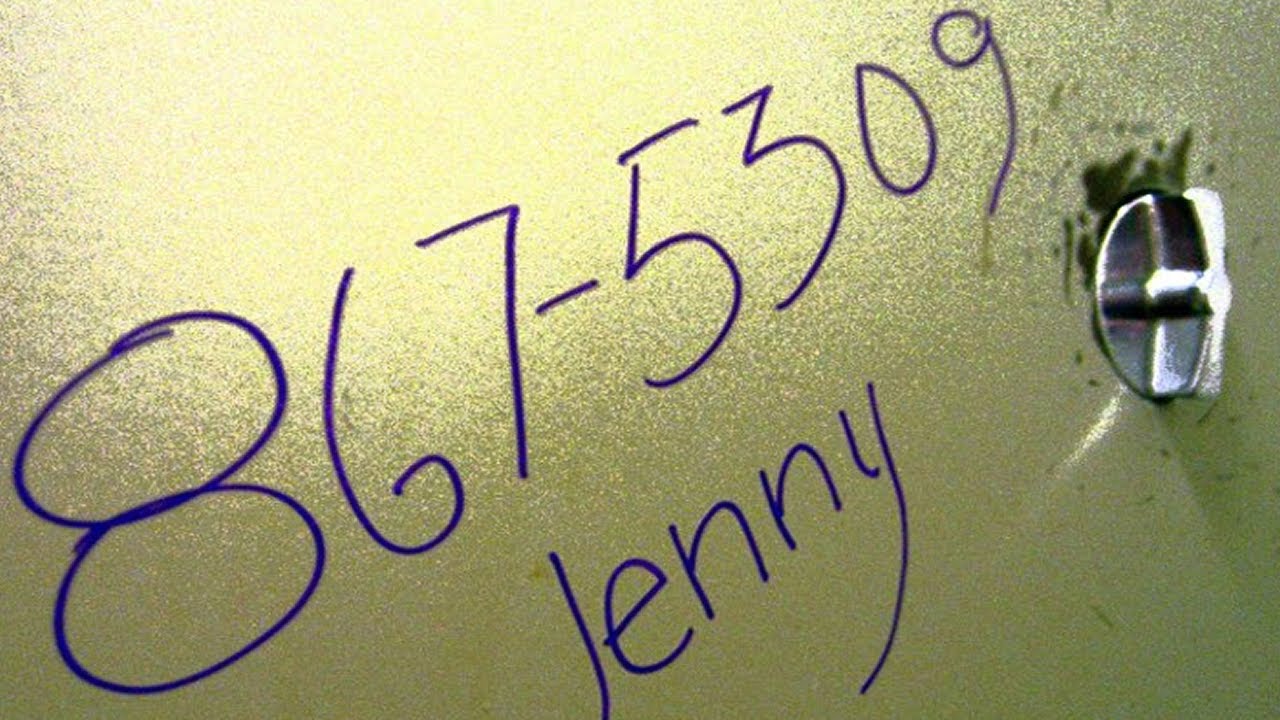 867-5309
Jenny